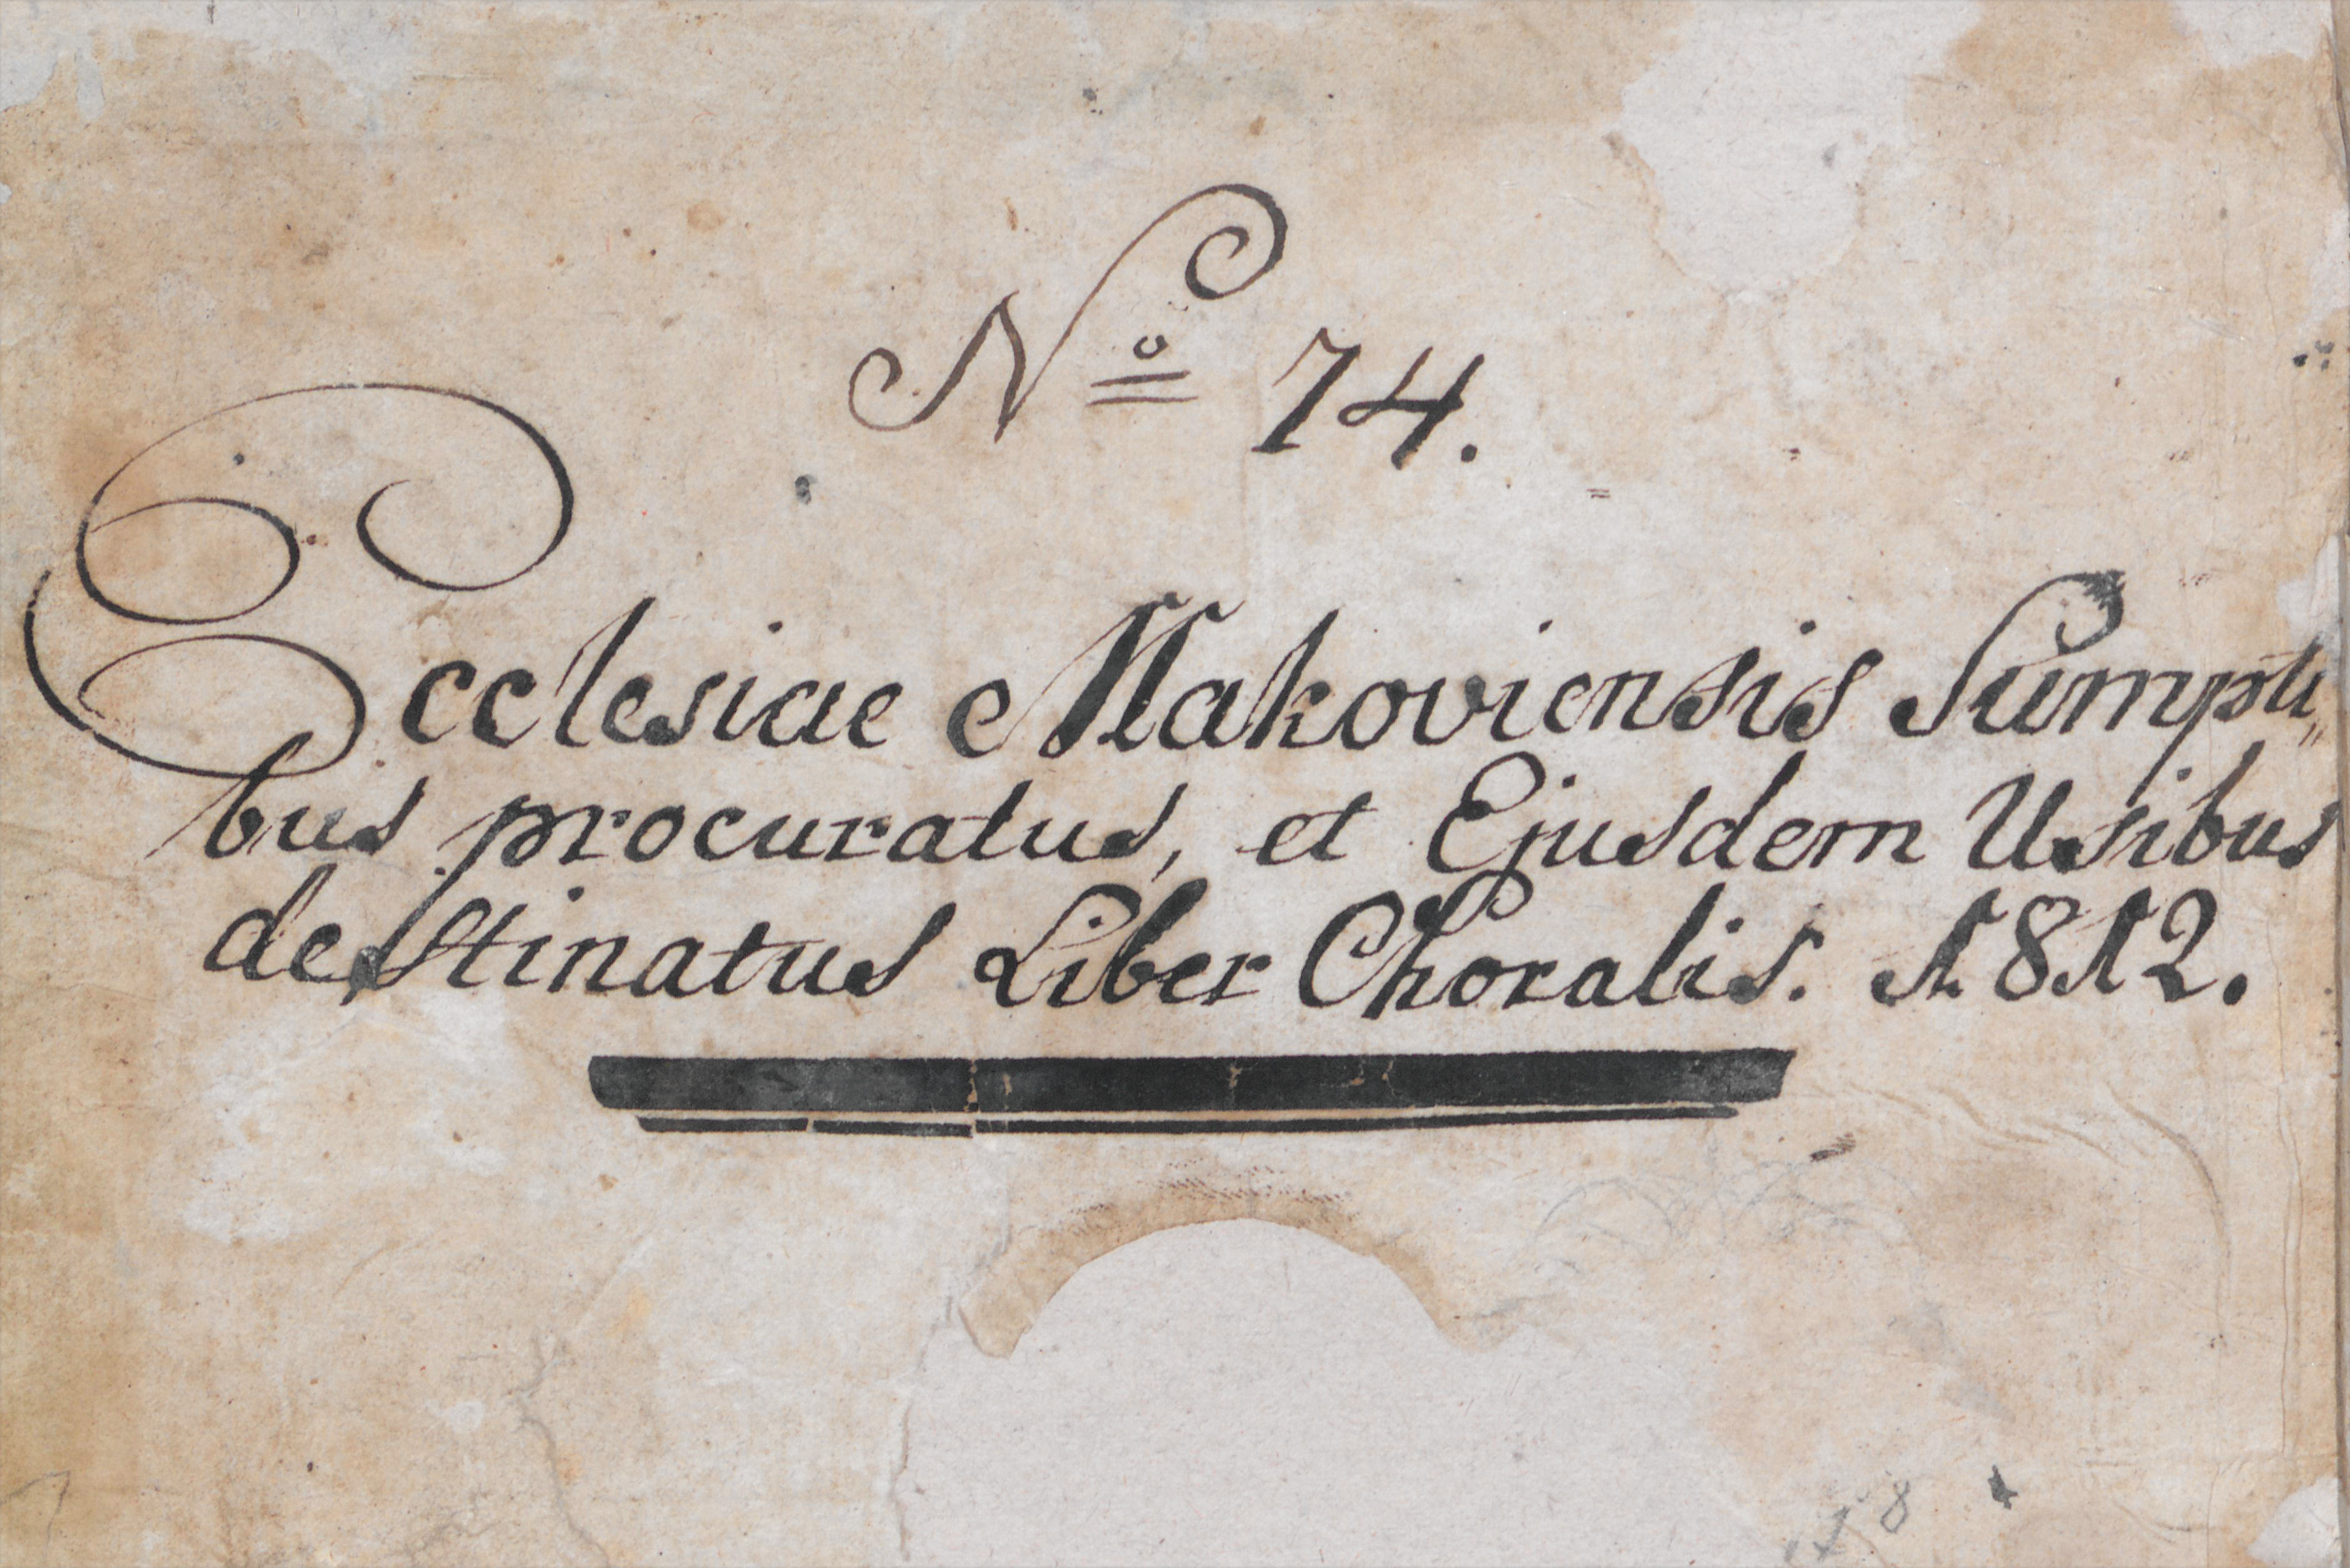 Nº 74.
Ecclesiae Makoviensis Sumpti„
bus procuratus, et Ejusdem Usibus
destinatus Liber Choralis. 1812.